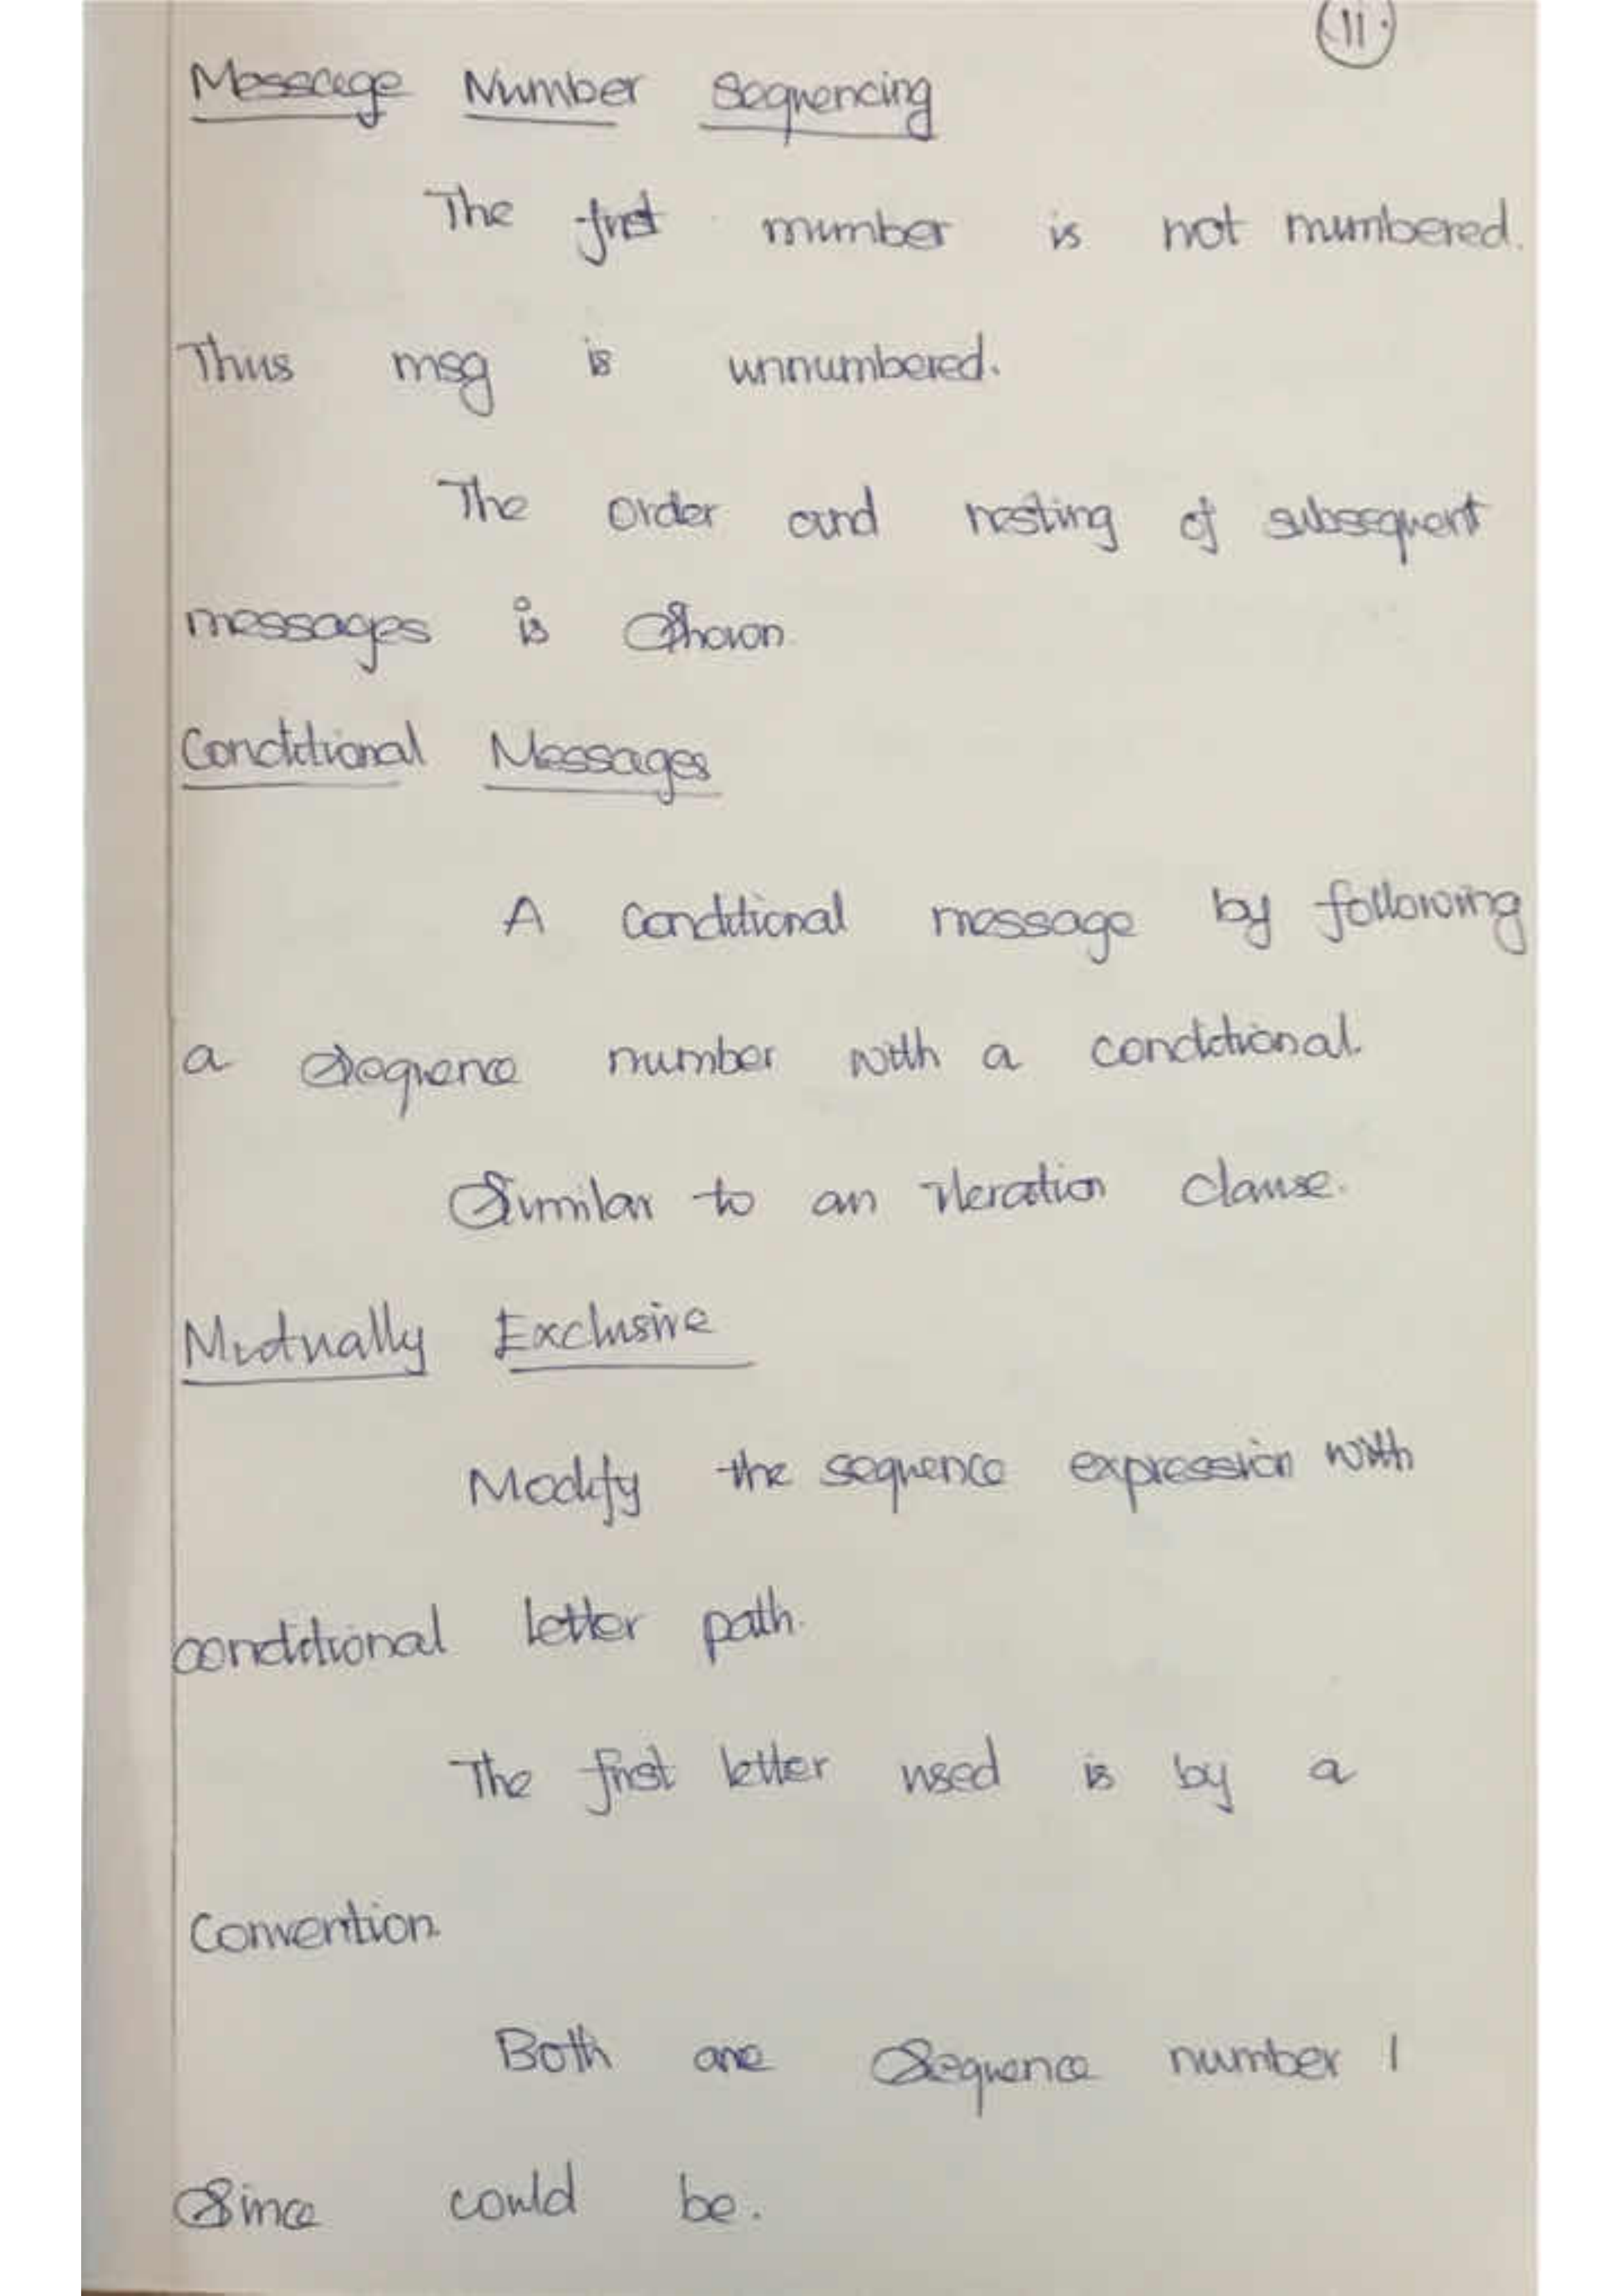 11.
Message Number Sequencing
The first number is not numbered.
Thus msg is unnumbered.
The order and nesting of subsequent
messages is Shown
Conditional Messages
A Conditional message by following
a Sequence number with a conditional.
Similar to an iteration clause.
Mutually Exclusive
Modify the sequence expression with
conditional letter path.
The first letter used is by a
Convention.
Both are Sequence number 1
Since could be.